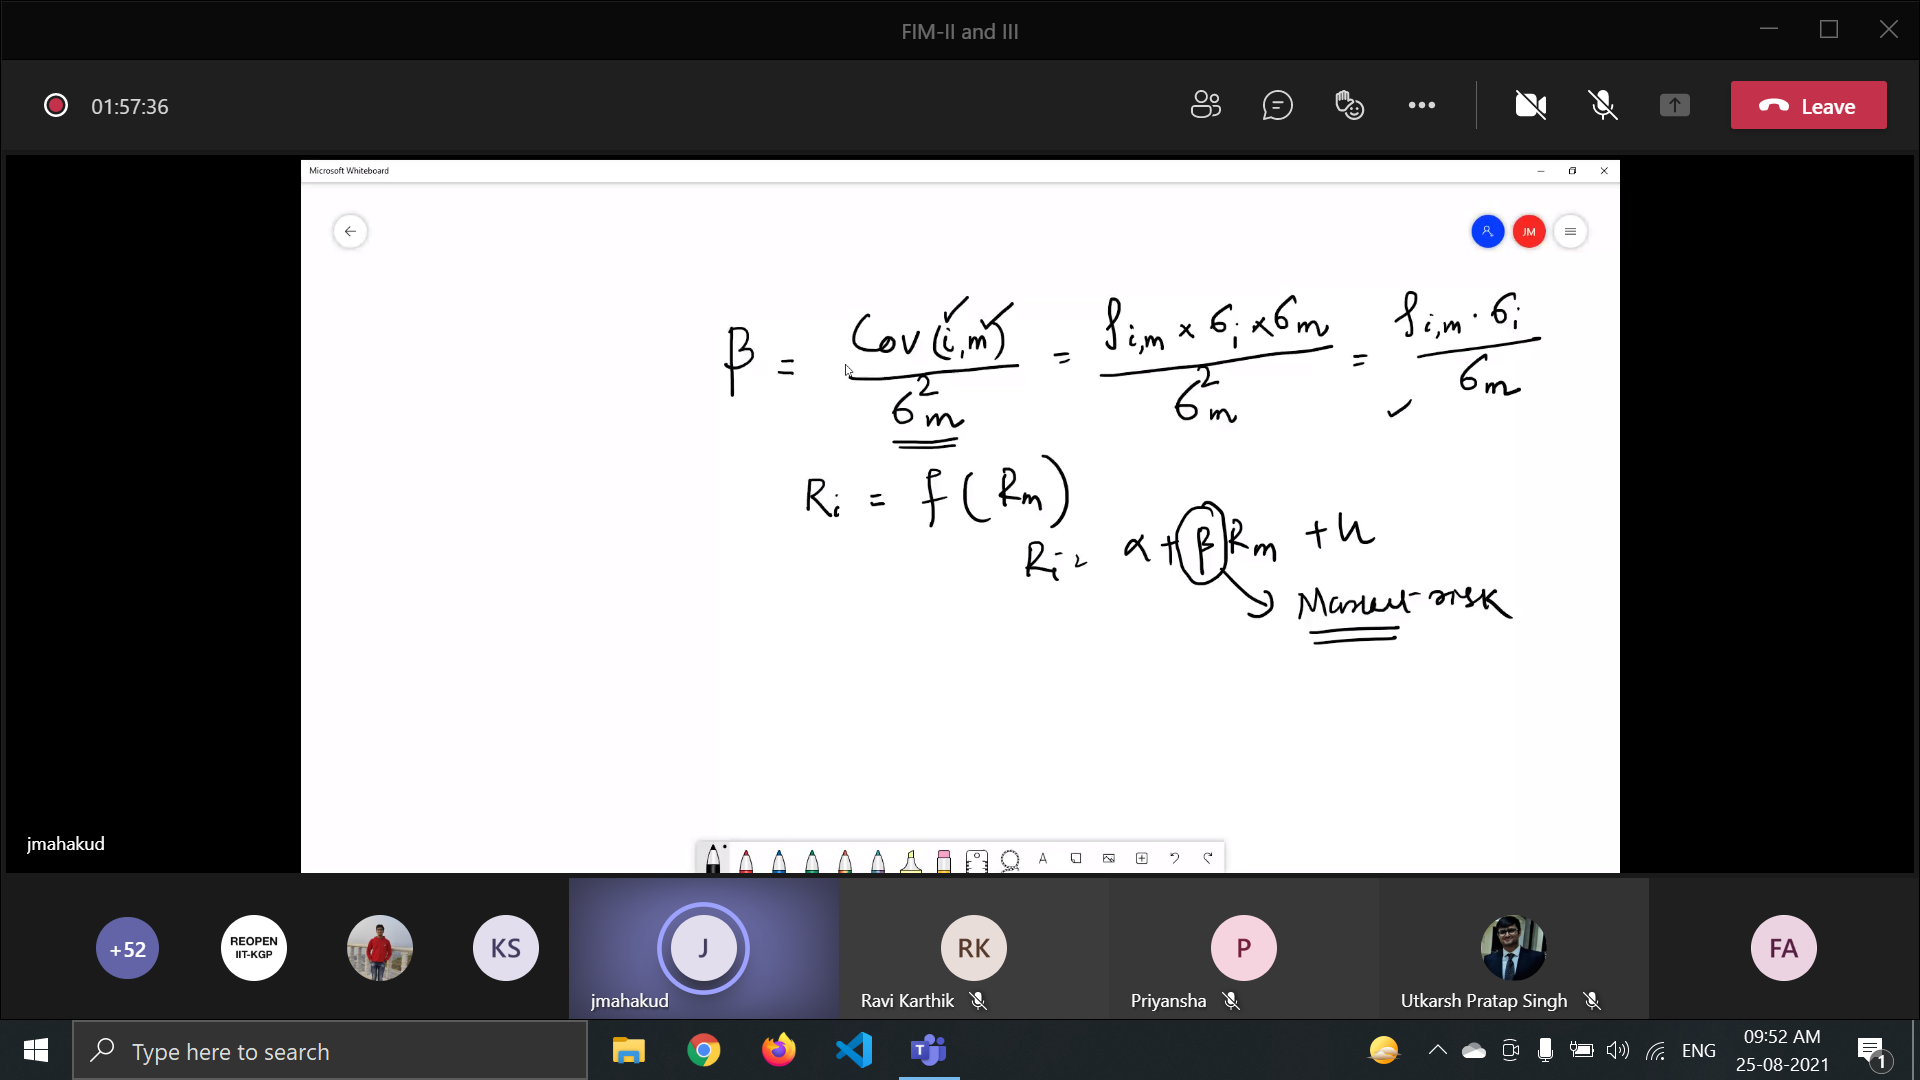 FIM-II and III
01:57:36
Leave
Microsoft Whiteboard
JM
β = Cov(i,m) / σ²m = ρi,m × σi × σm / σ²m = ρi,m · σi / σm
Ri = f(Rm)
Ri = α + β Rm + u
Market risk
jmahakud
A
+52
REOPEN
IIT-KGP
KS
J
jmahakud
RK
Ravi Karthik
P
Priyansha
Utkarsh Pratap Singh
FA
Type here to search
T
ENG
09:52 AM
25-08-2021
1